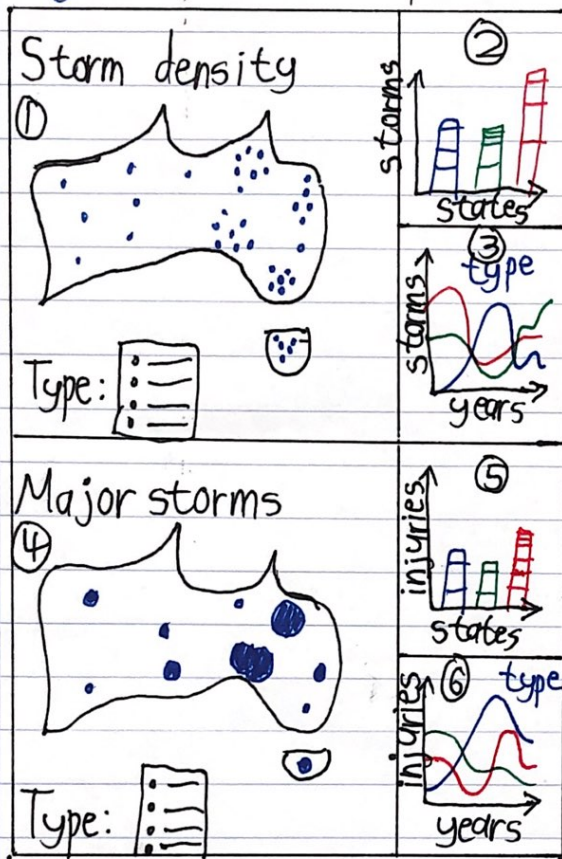 Storm density
①
Type:
②
storms
states
③
type
storms
years
Major storms
④
Type:
⑤
injuries
states
⑥
type
injuries
years